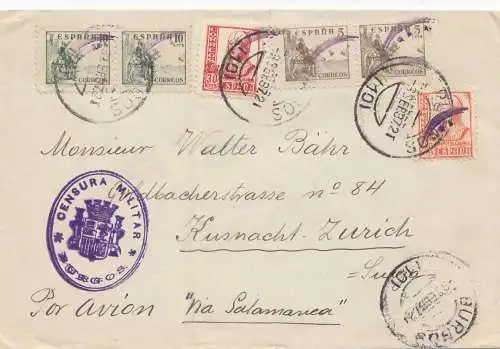 ESPAÑA ESPAÑA ESPAÑA ESPAÑA
10 10 5 5
CORREOS CORREOS 30 CORREOS CORREOS
ESPAÑA
101
Monsieur Walter Bähr
Goldbacherstrasse no 84
Kusnacht-Zurich
Suiza
Por Avion "Via Salamanca"
CENSURA MILITAR
BURGOS
BURGOS